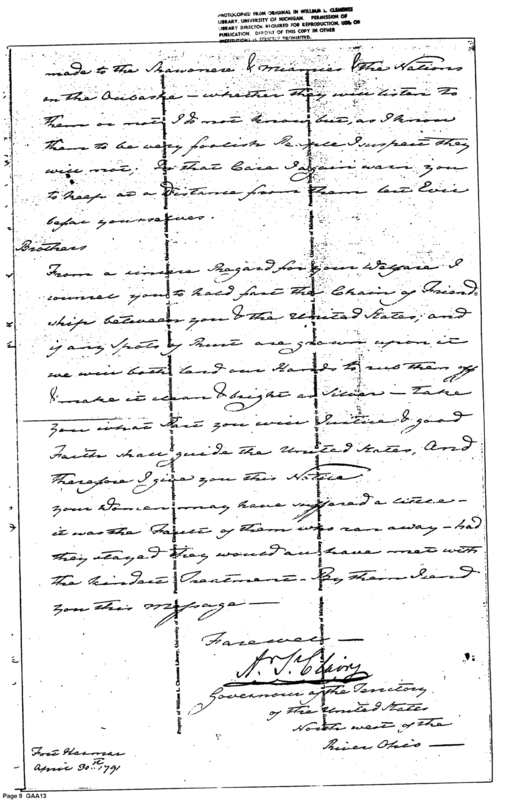 PHOTOCOPIED FROM ORIGINAL IN WILLIAM L. CLEMENTS
LIBRARY, UNIVERSITY OF MICHIGAN. PERMISSION OF
LIBRARY DIRECTOR REQUIRED FOR REPRODUCTION, USE, OR
PUBLICATION. DEPOSIT OF THIS COPY IN OTHER
INSTITUTIONS IS STRICTLY PROHIBITED.
made to the Shawonese & Miamies & the Nations
on the Oubaske – whether they will listen to
them or not I do not know but, as I know
them to be very foolish People I suspect they
will not; In that Case I again warn you
to keep at a distance from them lest Evil
befal yourselves.
Brothers
From a sincere Regard for your Welfare I
counsel you to hold fast the Chain of Friend
ship between you & the United States, and
if any Spots of Rust are grown upon it
we will both lend our Hands to rub them off
& make it clean & bright as Silver – take
you what Part you will Justice & good
Faith shall guide the United States, And
therefore I give you this Notice
your Women may have suffered a little –
it was the Fault of them who ran away – had
they stayed they would all have met with
the kindest Treatment – By them I send
you this Message —
Farewel —
Ar. St. Clair
Governour of the Territory
of the United States
North west of the
River Ohio —
Fort Harmar
April 30th 1791
Property of William L. Clements Library, University of Michigan.
Page 9 GAA13